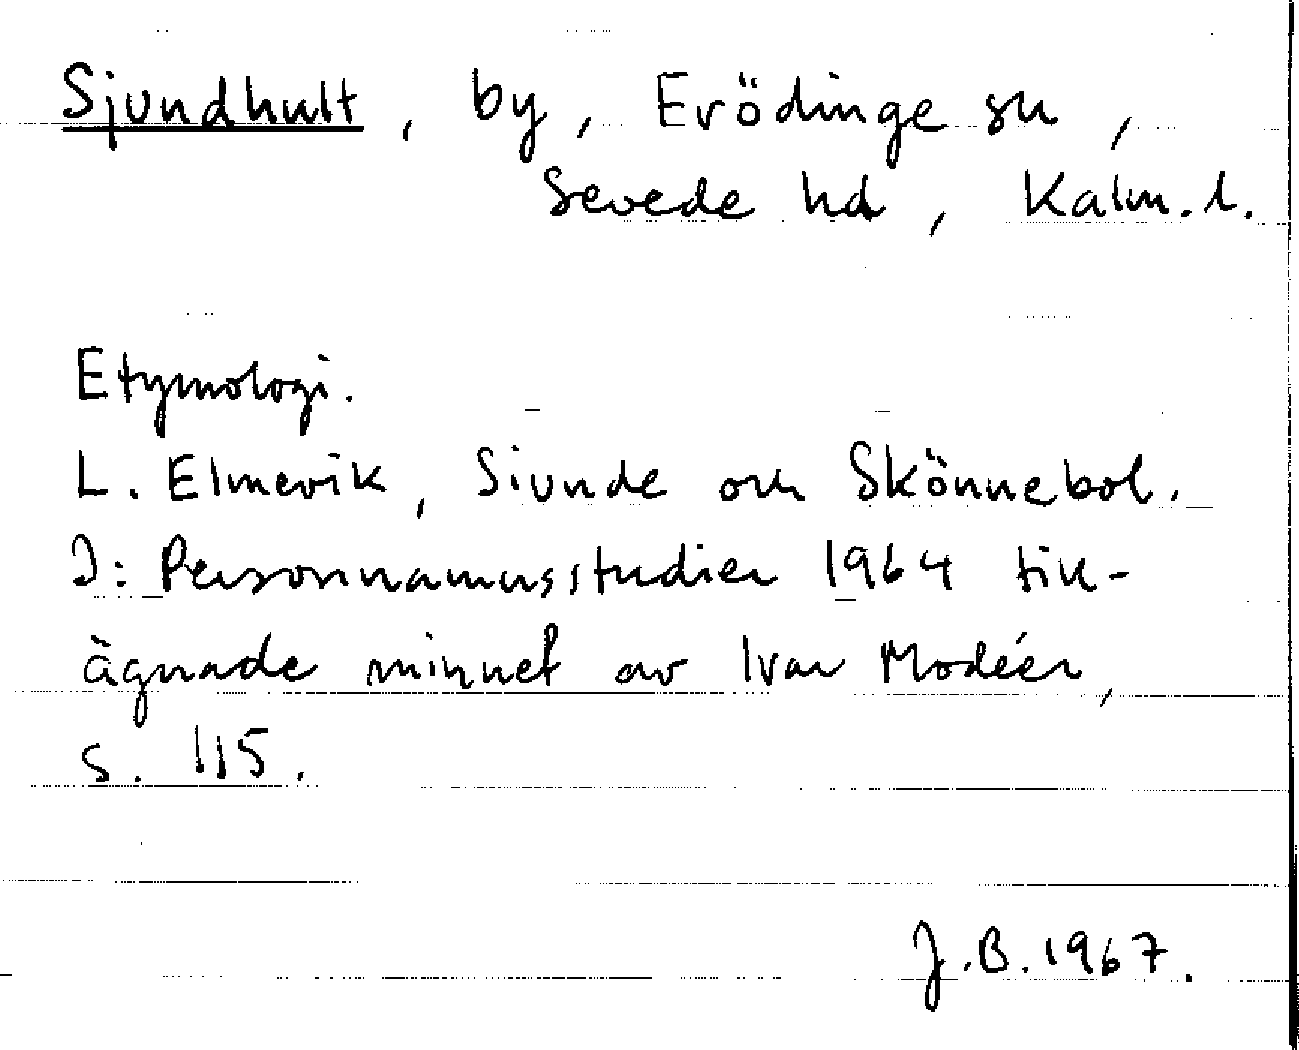 Sjundhult, by, Frödinge sn,
Sevede hd, Kalm. l.
Etymologi.
L. Elmevik, Siunde och Skönnebol.
I: Personnamnsstudier 1964 till-
ägnade minnet av Ivar Modéer,
s. 115.
J.B. 1967.